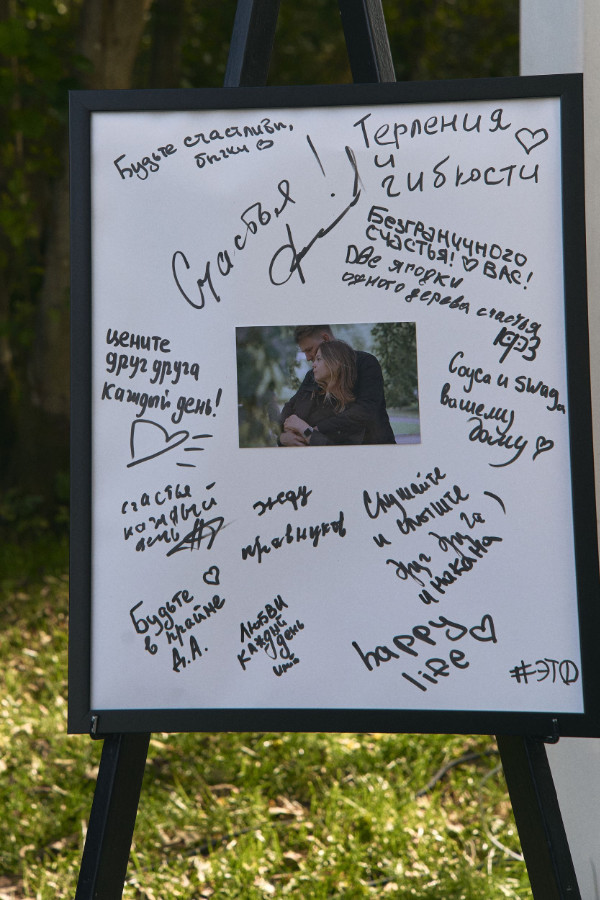 Будьте счастливи,
бички
Терпения
и
гибкости
Счастья!
Безграничного
счастья! ВАС!
Две ягодки
одного дерева счастья
цените
друг друга
каждый день!
Соуса и swaga
вашему
дому
счастья
каждый
день
жду
правнуков
Слушайте
и слышите
друг друга)
и никана
Будьте
в прайме
Д.А.
Любви
каждый
день
happy
life
#ЭТФ